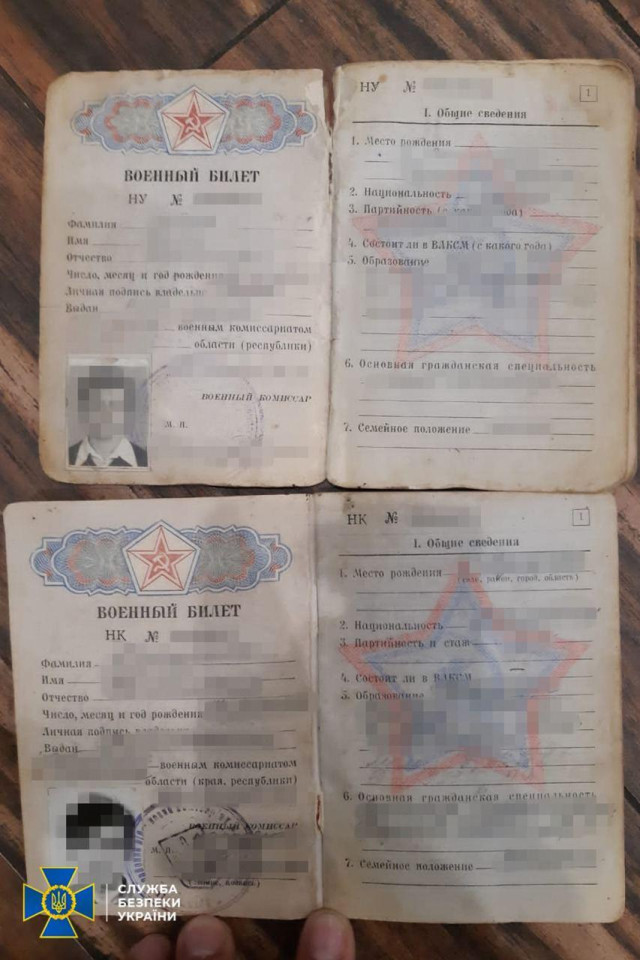 ВОЕННЫЙ БИЛЕТ
НУ №
Фамилия
Имя
Отчество
Число, месяц и год рождения
Личная подпись владельц
Выдан
военным комиссариатом
области (республики)
ВОЕННЫЙ КОМИССАР
М. П.
НУ №
1
I. Общие сведения
1. Место рождения
2. Национальность
3. Партийность (с
ода)
4. Состоит ли в ВЛКСМ (с какого года)
5. Образование
6. Основная гражданская специальность
7. Семейное положение
ВОЕННЫЙ БИЛЕТ
НК №
Фамилия
Имя
Отчество
Число, месяц и год рождения
Личная подпись
Выдан
военным комиссариатом
области (края, республики)
ВОЕННЫЙ КОМИССАР
М. П.
НК №
1
I. Общие сведения
1. Место рождения
(село, район, город, область)
2. Национальность
3. Партийность и стаж
4. Состоит ли в ВЛКСМ
5. Образование
6. Основная гражданская специальность
7. Семейное положение
СЛУЖБА
БЕЗПЕКИ
УКРАЇНИ